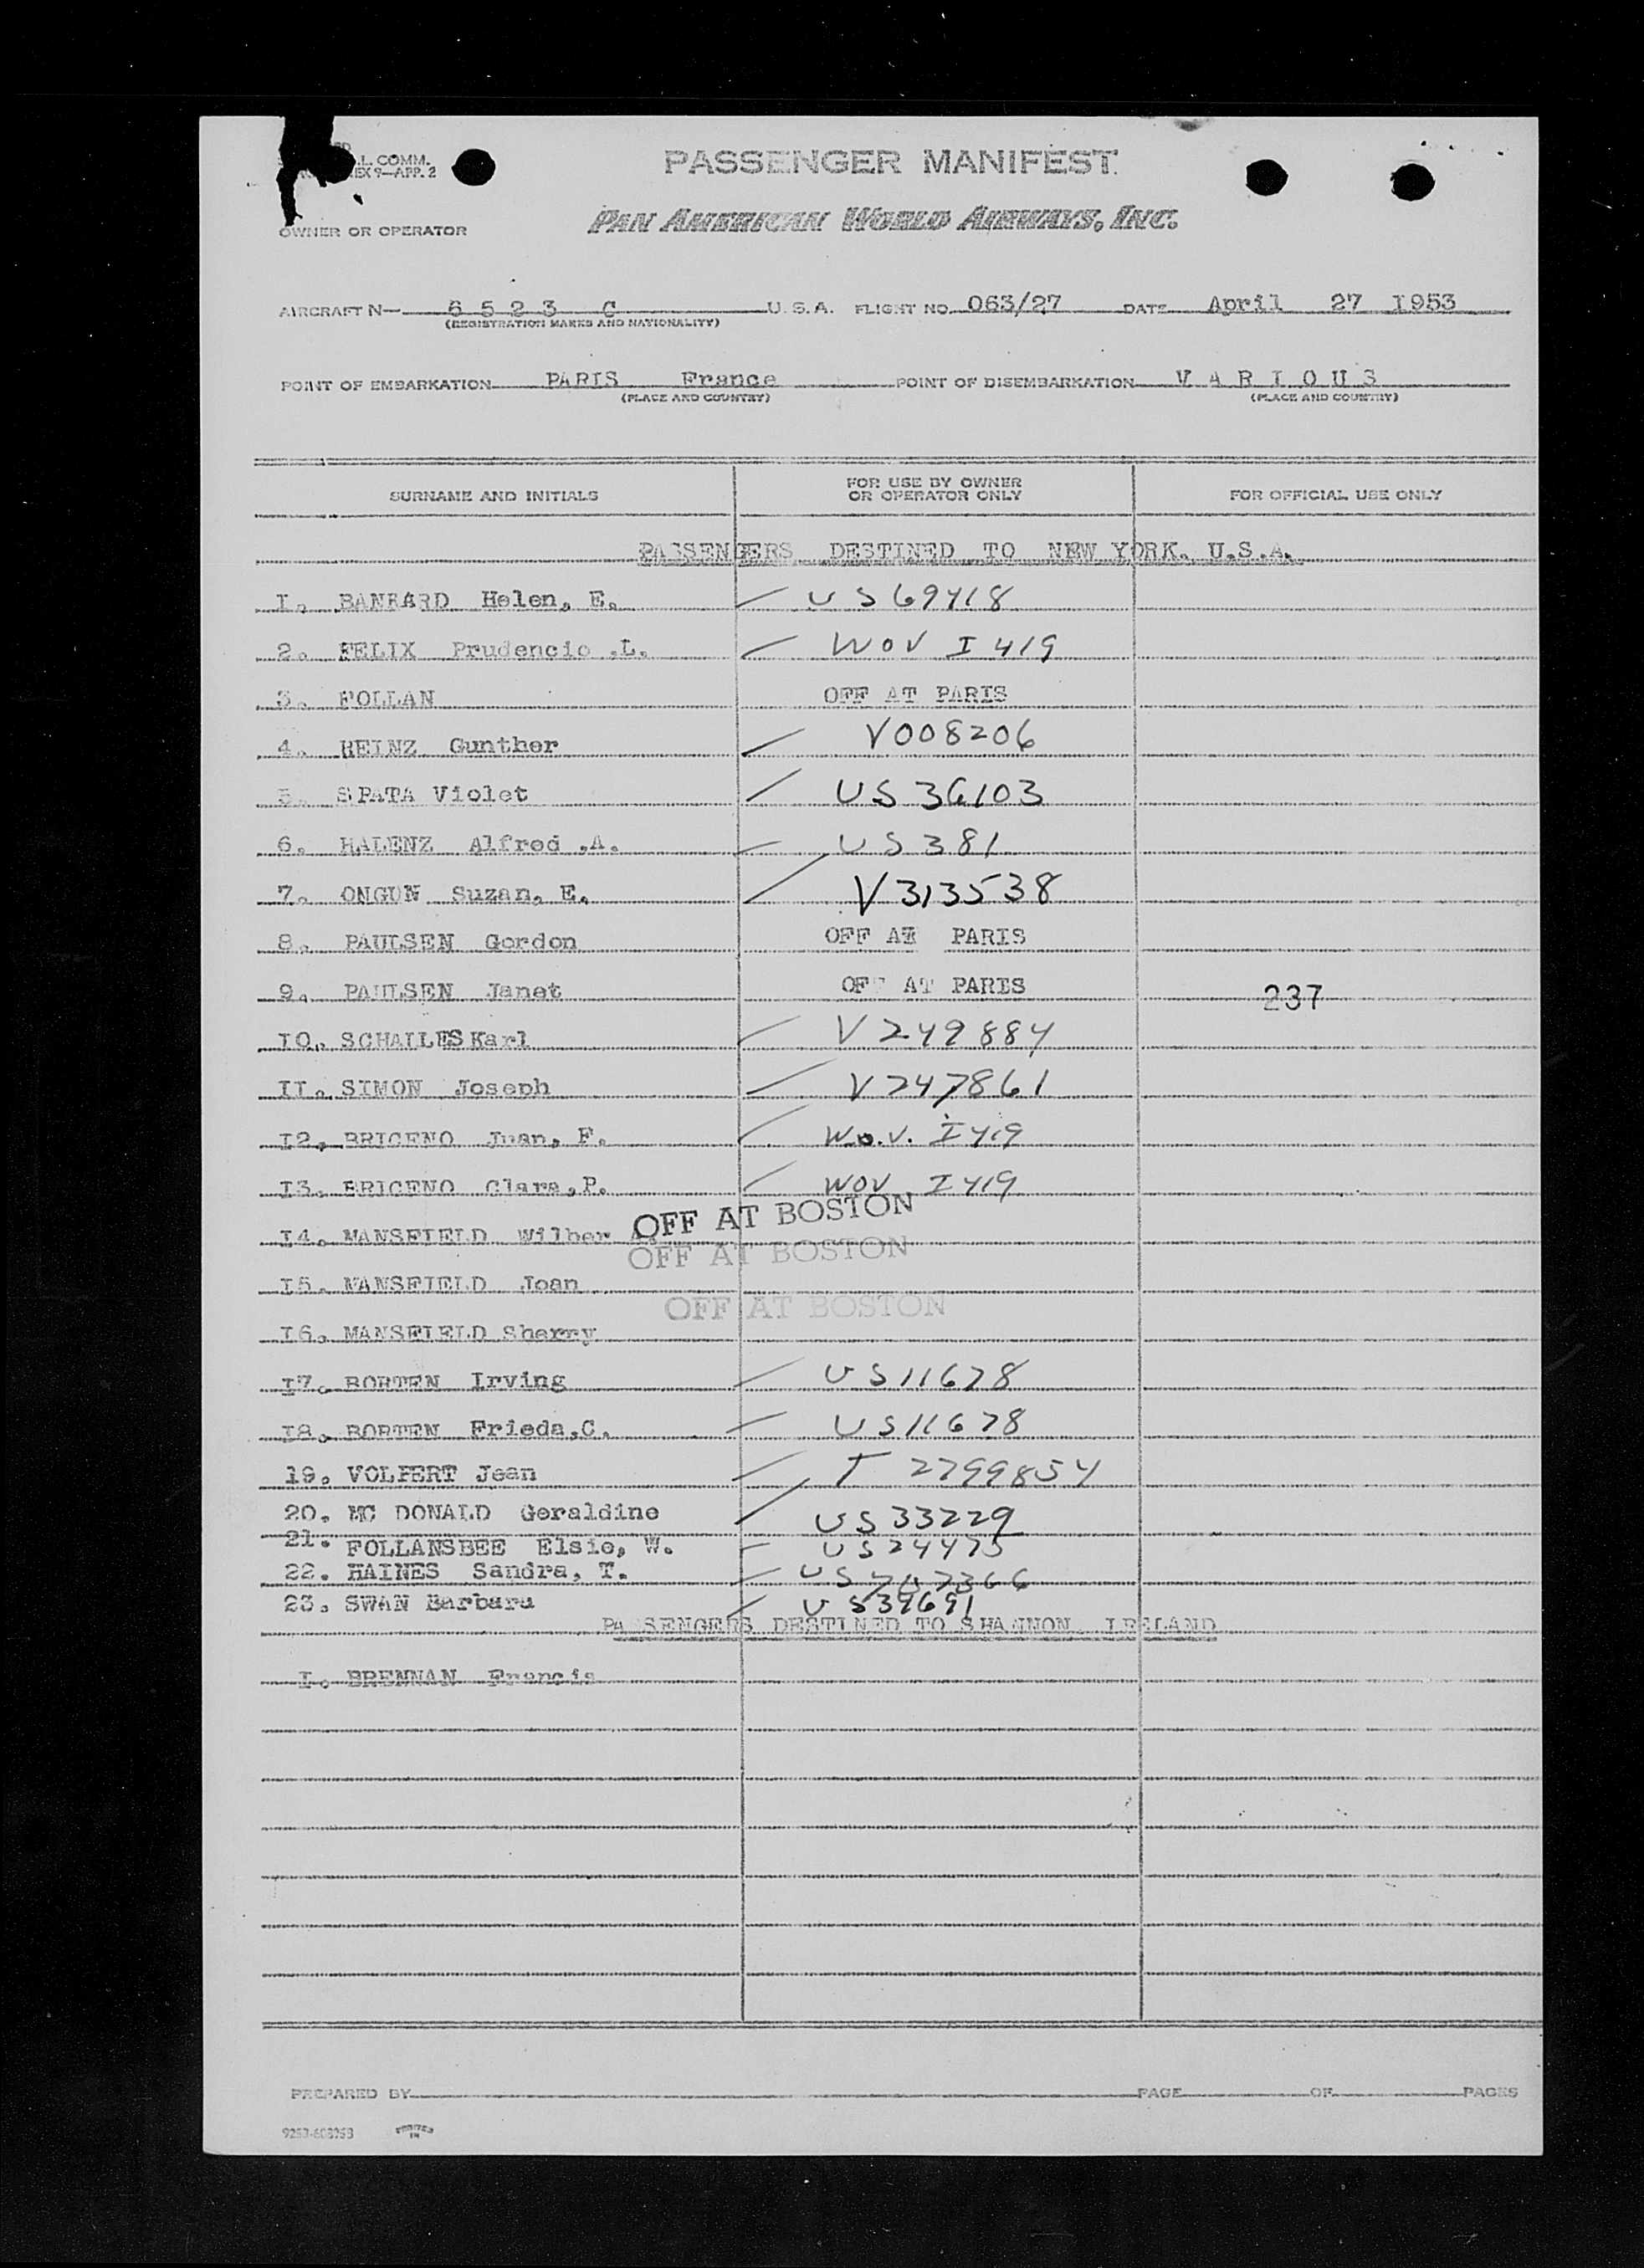 L. COMM.
EX 9—APP. 2
PASSENGER MANIFEST
OWNER OR OPERATOR
PAN AMERICAN WORLD AIRWAYS, INC.
AIRCRAFT N— 6 5 2 3 C U.S.A. FLIGHT NO. 063/27 DATE April 27 I953
(REGISTRATION MARKS AND NATIONALITY)
POINT OF EMBARKATION PARIS France POINT OF DISEMBARKATION V A R I O U S
(PLACE AND COUNTRY) (PLACE AND COUNTRY)
SURNAME AND INITIALS FOR USE BY OWNER OR OPERATOR ONLY FOR OFFICIAL USE ONLY
PASSENGERS DESTINED TO NEW YORK. U.S.A.
I. Helen, E. US 69418
2. FELIX Prudencio .L. WOV I 419
3. FOLLAN OFF AT PARIS
4. HEINZ Gunther V008206
5. SPATA Violet US 36103
6. HALENZ Alfred .A. US 381
7. ONGUN Suzan, E. V 313538
8. PAULSEN Gordon OFF AT PARIS
9. PAULSEN Janet OFF AT PARIS 237
IO. SCHAILES Karl V 249884
II. SIMON Joseph V 247861
I2. BRICENO Juan, F. W.O.V. I 419
I3. BRICENO Clara,P. WOV I 419
I4. MANSFIELD Wilber OFF AT BOSTON
OFF AT BOSTON
I5. MANSFIELD Joan
OFF AT BOSTON
I6. MANSFIELD Sherry
I7. BORTEN Irving US 11678
I8. BORTEN Frieda,C. US 11678
19. VOLPERT Jean T 2799854
20. MC DONALD Geraldine US 33229
21. FOLLANSBEE Elsie, W. US 24475
22. HAINES Sandra, T. US
23. SWAN Barbara US 39691
PASSENGERS DESTINED TO SHANNON. IRELAND
I. BRENNAN Francis
PREPARED BY PAGE OF PAGES
PRINTED
IN